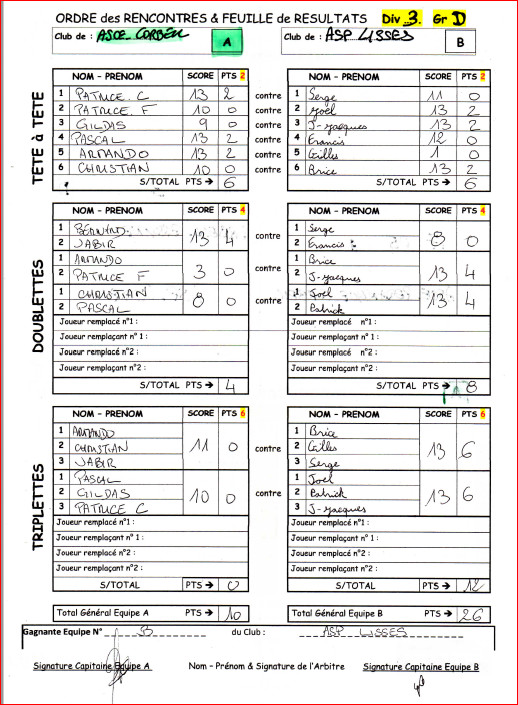 ORDRE des RENCONTRES & FEUILLE de RESULTATS Div 3. Gr D
Club de : ASCE CORBEIL A Club de : ASP LISSES B
TETE à TETE
NOM - PRENOM SCORE PTS 2 NOM - PRENOM SCORE PTS 2
1 PATRICE. C 13 2 contre 1 Serge 11 0
2 PATRICE. F 10 0 contre 2 Joël 13 2
3 GILDAS 9 0 contre 3 J-Jacques 13 2
4 PASCAL 13 2 contre 4 Francis 12 0
5 ARMANDO 13 2 contre 5 Gilles 1 0
6 CHRISTIAN 10 0 contre 6 Brice 13 2
S/TOTAL PTS → 6 S/TOTAL PTS → 6
DOUBLETTES
NOM - PRENOM SCORE PTS 4 NOM - PRENOM SCORE PTS 4
1 BERNARD 1 Serge
2 JABIR 13 4 contre 2 Francis 8 0
1 ARMANDO 1 Brice
2 PATRICE F 3 0 contre 2 J-Jacques 13 4
1 CHRISTIAN 1 Joël
2 PASCAL 8 0 contre 2 Patrick 13 4
Joueur remplacé n°1 : Joueur remplacé n°1 :
Joueur remplaçant n° 1 : Joueur remplaçant n° 1 :
Joueur remplacé n°2 : Joueur remplacé n°2 :
Joueur remplaçant n°2 : Joueur remplaçant n°2 :
S/TOTAL PTS → 4 S/TOTAL PTS → 8
TRIPLETTES
NOM - PRENOM SCORE PTS 6 NOM - PRENOM SCORE PTS 6
1 ARMANDO 1 Brice
2 CHRISTIAN 11 0 contre 2 Gilles 13 6
3 JABIR 3 Serge
1 PASCAL 1 Joel
2 GILDAS 10 0 contre 2 Patrick 13 6
3 PATRICE C 3 J-Jacques
Joueur remplacé n°1 : Joueur remplacé n°1 :
Joueur remplaçant n° 1 : Joueur remplaçant n° 1 :
Joueur remplacé n°2 : Joueur remplacé n°2 :
Joueur remplaçant n°2 : Joueur remplaçant n°2 :
S/TOTAL PTS → 0 S/TOTAL PTS → 12
Total Général Equipe A PTS → 10 Total Général Equipe B PTS → 26
Gagnante Equipe N° B du Club : ASP LISSES
Signature Capitaine Equipe A Nom - Prénom & Signature de l'Arbitre Signature Capitaine Equipe B